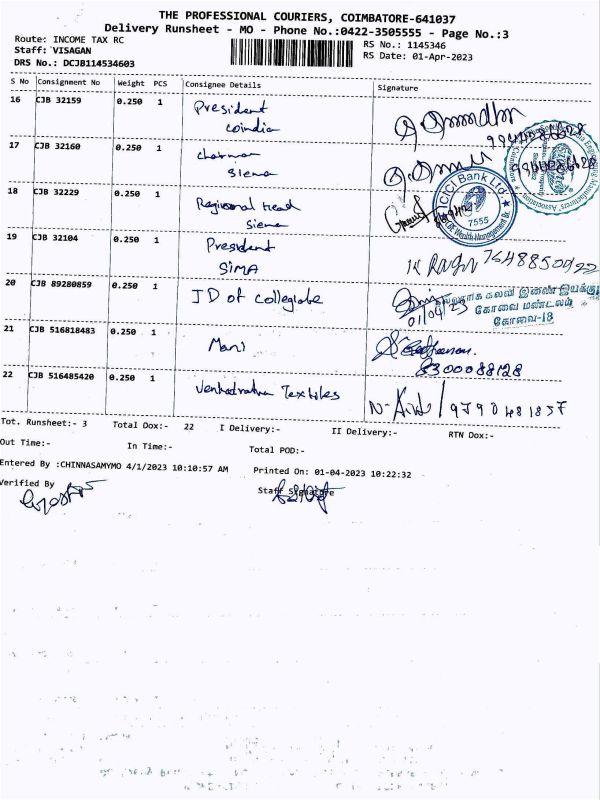 THE PROFESSIONAL COURIERS, COIMBATORE-641037
Delivery Runsheet - MO - Phone No.:0422-3505555 - Page No.:3
Route: INCOME TAX RC
RS No.: 1145346
Staff: VISAGAN
RS Date: 01-Apr-2023
DRS No.: DCJB114534603
S No Consignment No Weight PCS Consignee Details Signature
16 CJB 32159 0.250 1 President
coindia
17 CJB 32160 0.250 1 chairman
Siema
18 CJB 32229 0.250 1 Regional Head
Siema
ICICI Bank Ltd.
7555
19 CJB 32104 0.250 1 President
SIMA
20 CJB 89280859 0.250 1 JD of collegiate
01/04/23
கோவை மண்டலம்
கோவை-18
21 CJB 516818483 0.250 1 Mani
8300088128
22 CJB 516485420 0.250 1 Textiles
Tot. Runsheet:- 3 Total Dox:- 22 I Delivery:- II Delivery:- RTN Dox:-
Out Time:- In Time:- Total POD:-
Entered By :CHINNASAMYMO 4/1/2023 10:10:57 AM Printed On: 01-04-2023 10:22:32
Verified By Staff Signature